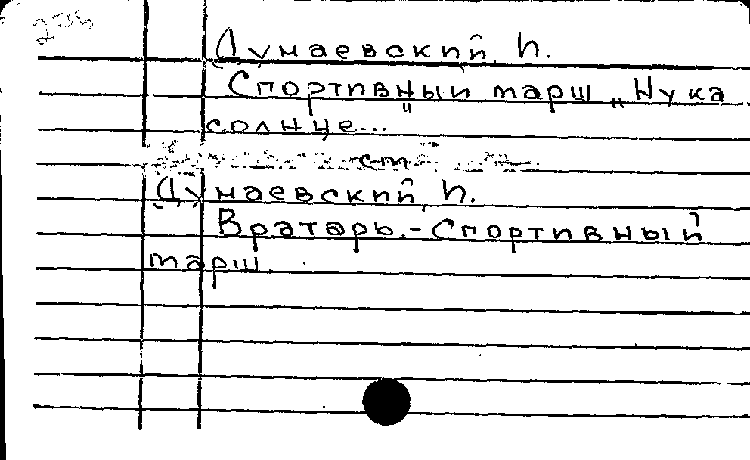 Думаевский, И.
Спортивный марш „Ну ка
солнце..."
Думаевский, И.
Вратарь.-Спортивный
марш.